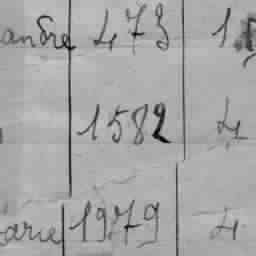 andre 473 1
1582 4
arie 1979 4